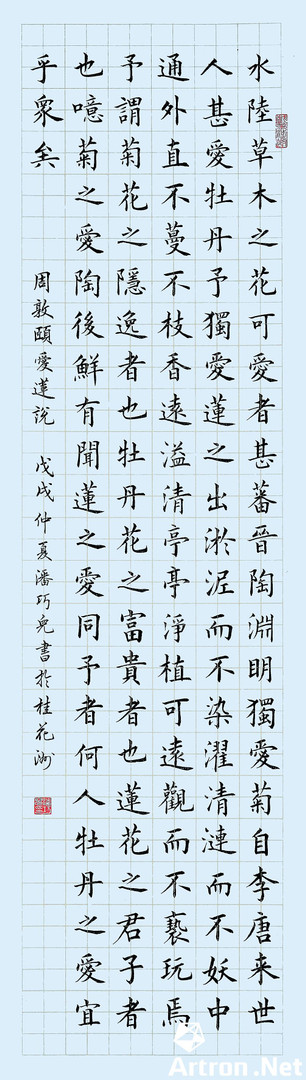 水陸草木之花可愛者甚蕃晉陶淵明獨愛菊自李唐来世
人甚愛牡丹予獨愛蓮之出淤泥而不染濯清漣而不妖中
通外直不蔓不枝香遠溢清亭亭淨植可遠觀而不褻玩焉
予謂菊花之隱逸者也牡丹花之富貴者也蓮花之君子者
也噫菊之愛陶後鮮有聞蓮之愛同予者何人牡丹之愛宜
乎眾矣
周敦頤愛蓮說 戊戌仲夏潘巧兒書於桂花洲
Artron.Net